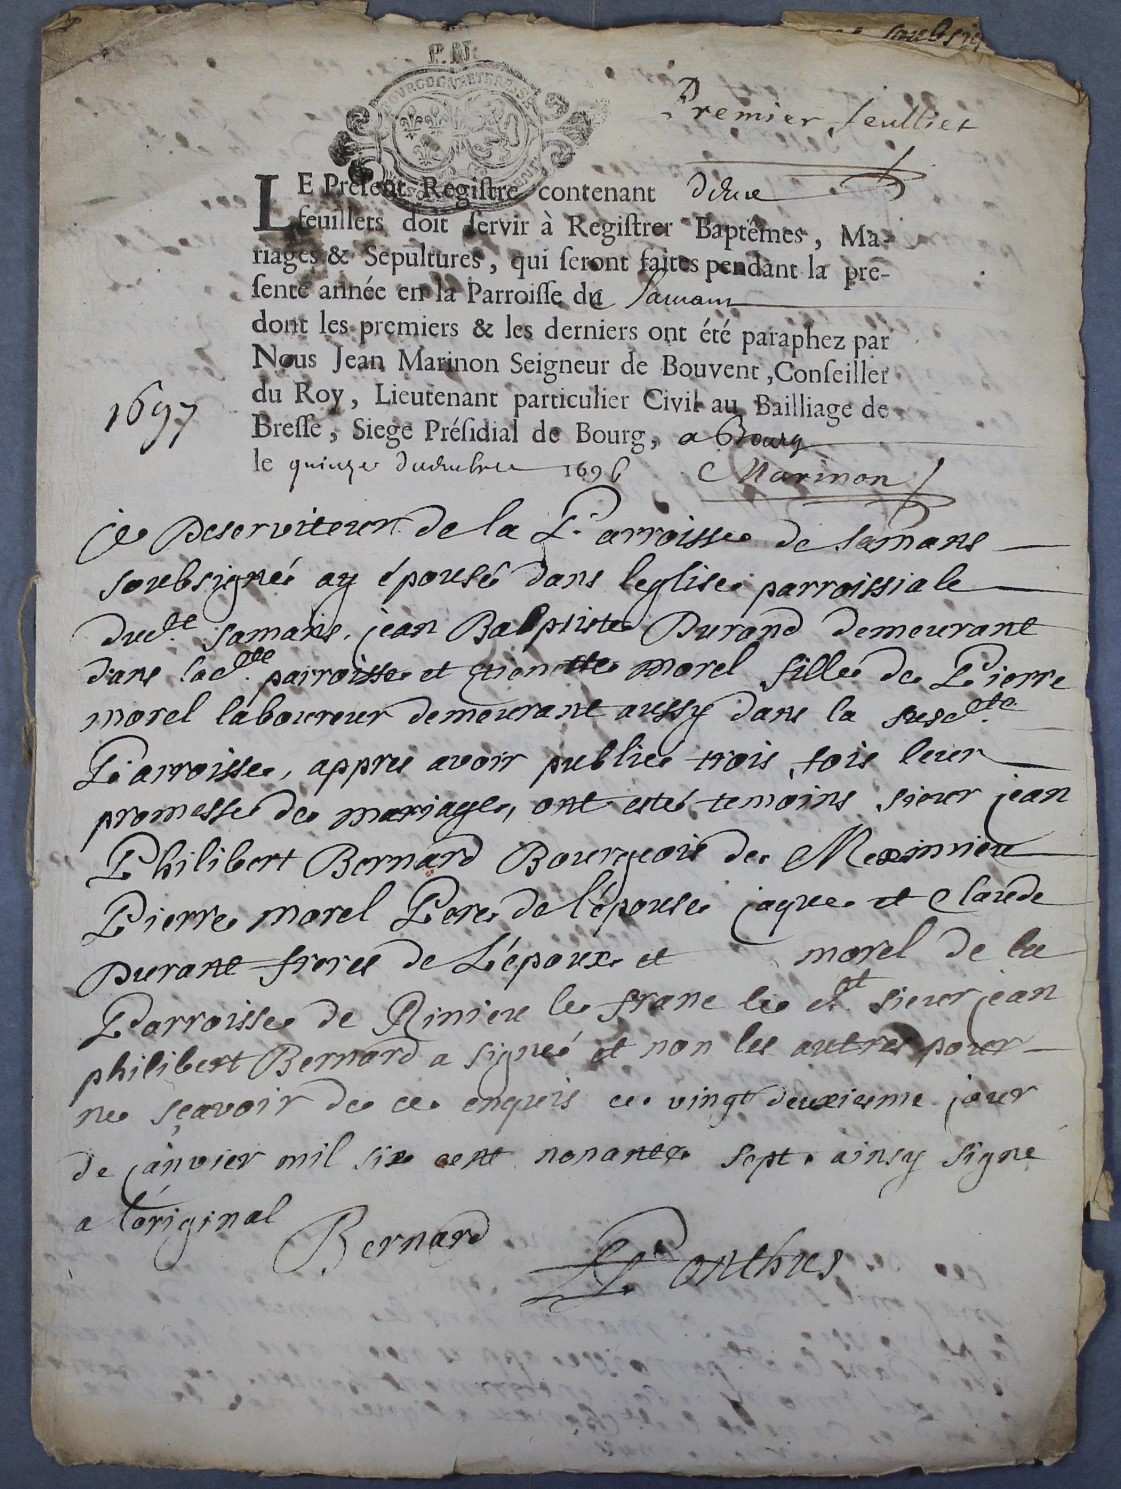 P. N.
BOURGOGNE ET BRESSE
Premier feulliet
LE Preſent Regiſtre contenant deux
feuillets doit ſervir à Regiſtrer Baptêmes, Ma-
riages & Sepultures, qui ſeront faites pendant la pre-
ſente année en la Parroiſſe du Samans
dont les premiers & les derniers ont été paraphez par
Nous Jean Marinon Seigneur de Bouvent, Conſeiller
du Roy, Lieutenant particulier Civil au Bailliage de
1697
Breſſe, Siege Préſidial de Bourg, a Bourg
le quinze 1696 Marinon
je Deserviteur de la Parroisse de samans
soubsigné ay épousé dans leglise parroissiale
dud.te samans, jean Baptiste Durand demeurant
dans lad.tte parroisse et etienette morel fille de Pierre
morel laboureur demeurant aussy dans la susd.tte
Parroisse, appres avoir publies trois fois leur
promesse de mariage, ont estés temoins sieur jean
Philibert Bernard Bourgeois de Meximieu
Pierre morel Pere de l'épouse jaque et Claude
Durant freres de L'époux et morel de la
Parroisse de Rinieu le franc le dt sieur jean
philibert Bernard a signeé et non les autres pour
ne sçavoir de ce enquis ce vingt deuxieme jour
de janvier mil six cent nonante sept ainsy signé
a l'original
Bernard
Ponthus